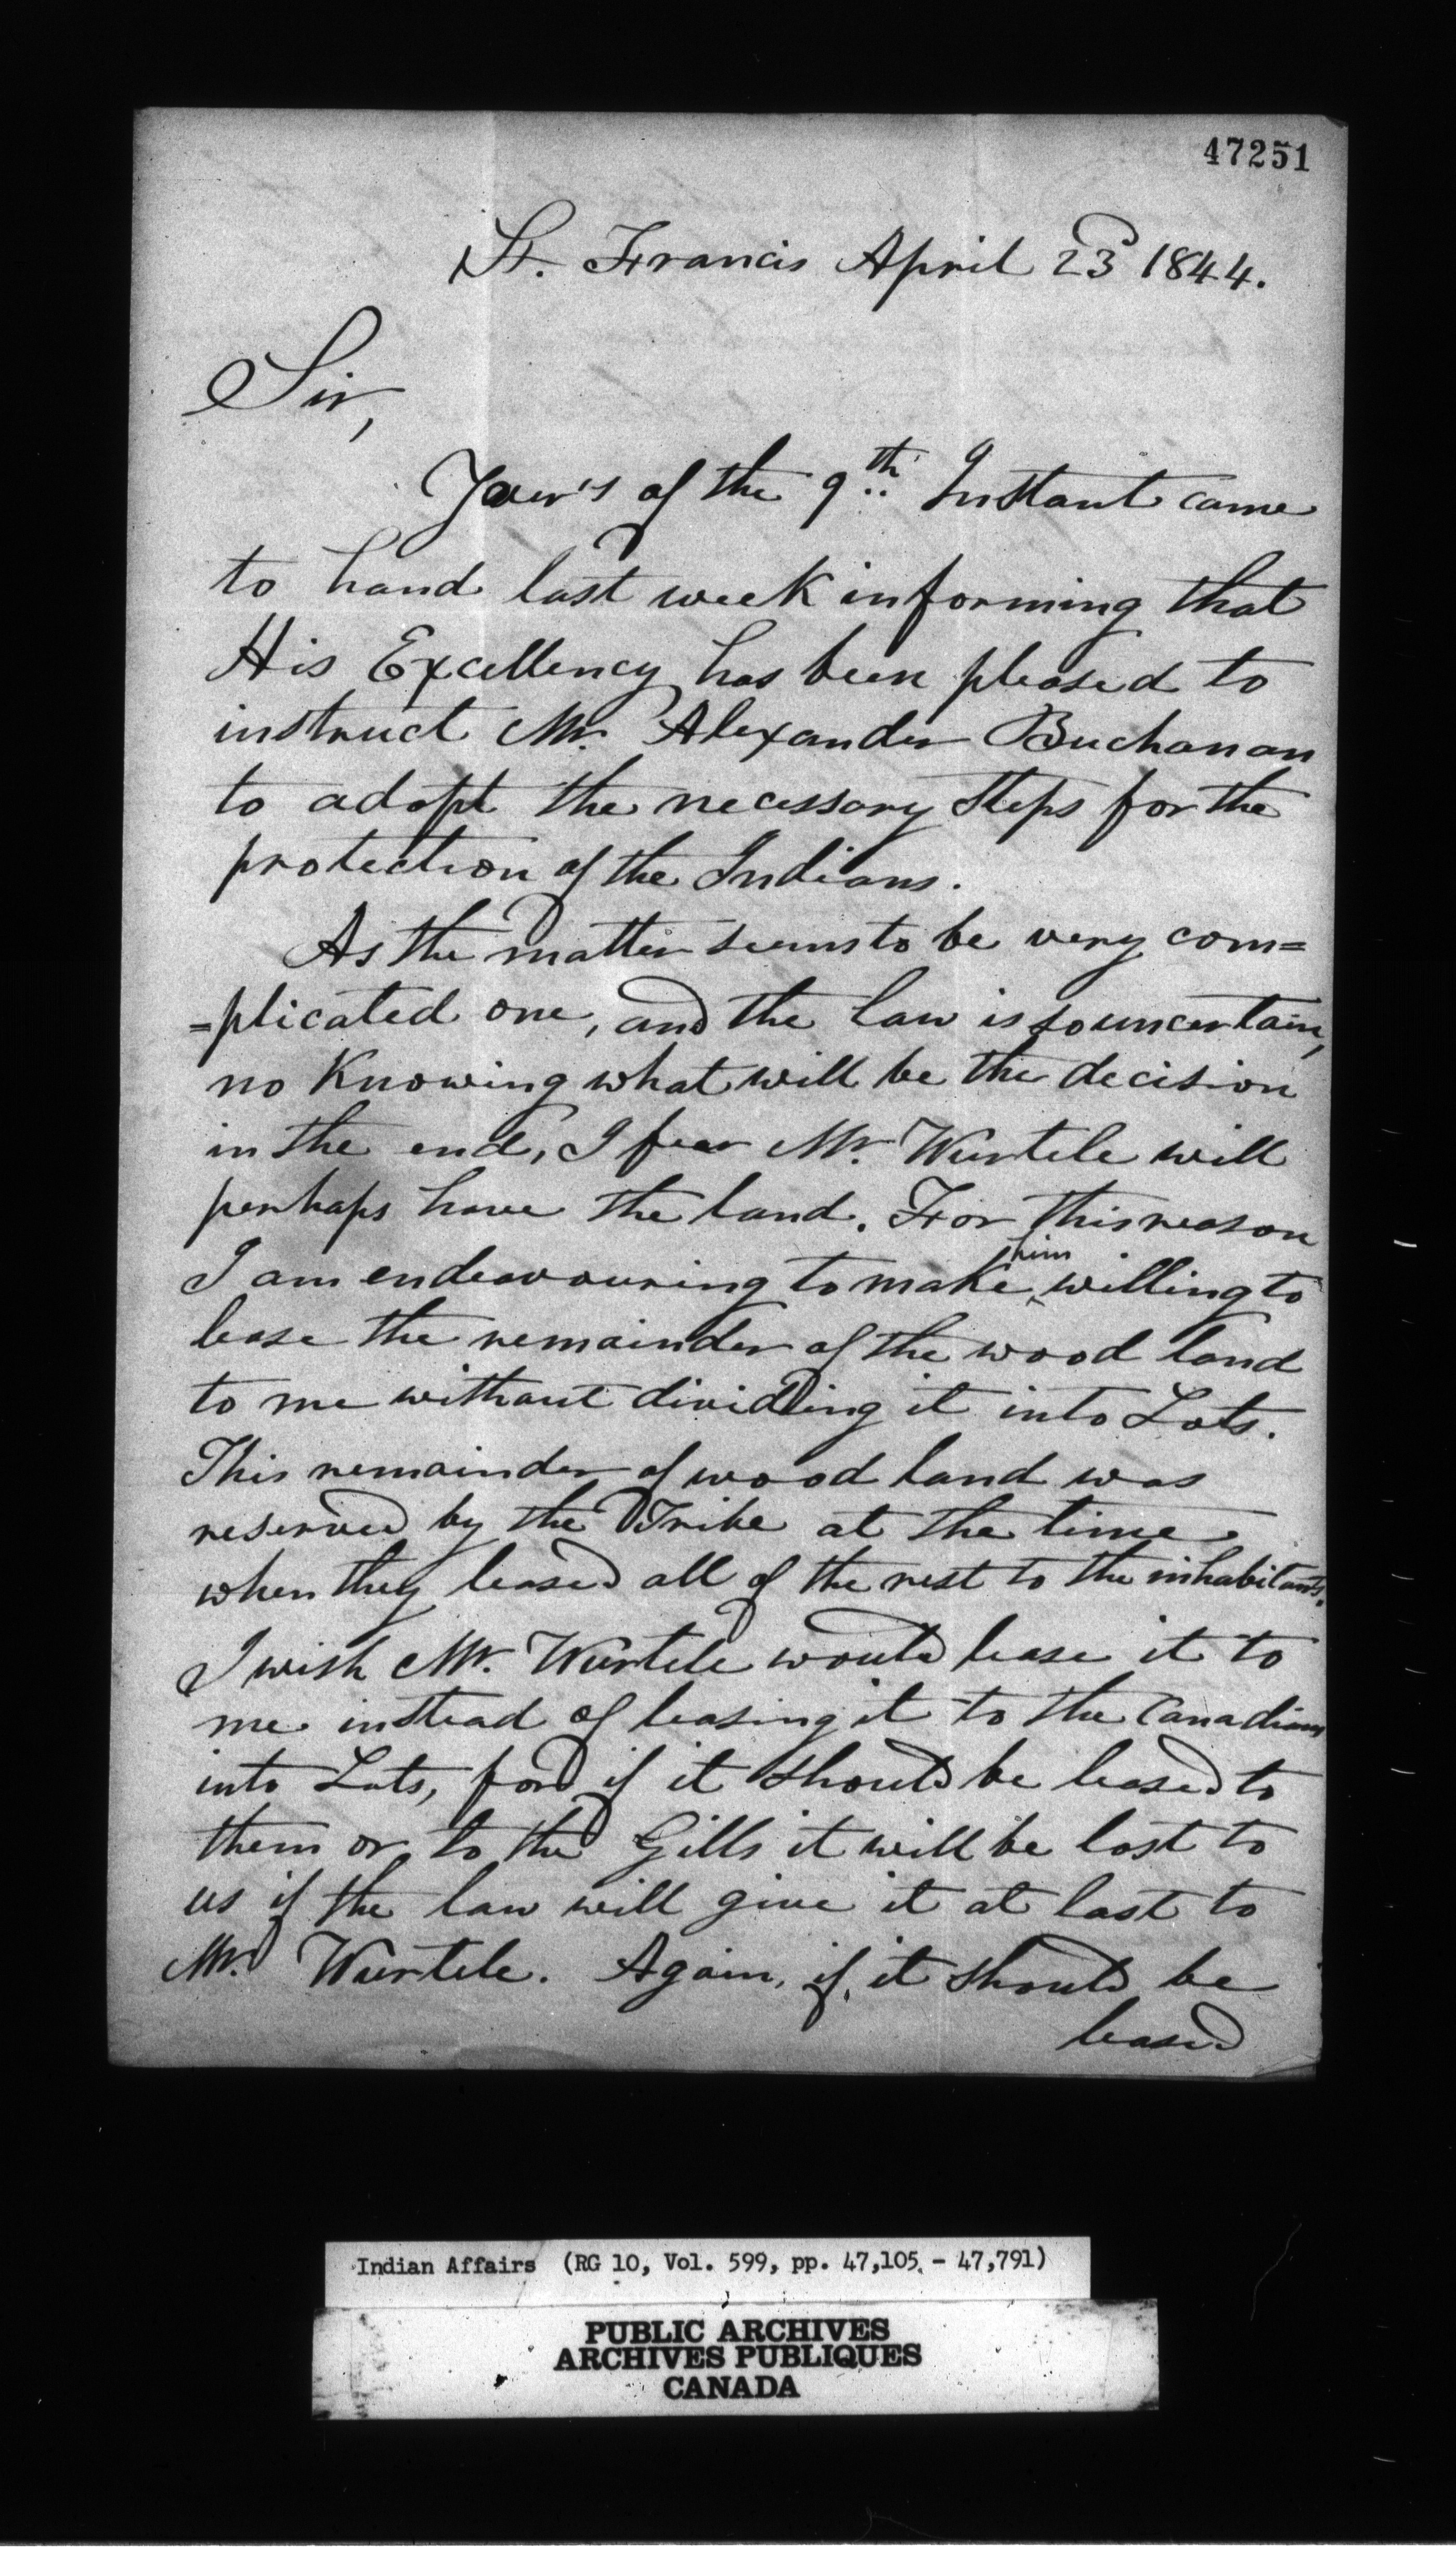 47251
St. Francis April 23d 1844.
Sir,
Your's of the 9th Instant came
to hand last week informing that
His Excellency has been pleased to
instruct Mr. Alexander Buchanan
to adopt the necessary steps for the
protection of the Indians.
As the matter seems to be very com=
=plicated one, and the law is so uncertain,
no Knowing what will be the decision
in the end, I fear Mr. Wurtele will
perhaps have the land. For this reason
I am endeavouring to make him willing to
lease the remainder of the wood land
to me without dividing it into Lots.
This remainder of wood land was
reserved by the Tribe at the time
when they leased all of the rest to the inhabitants.
I wish Mr. Wurtele would lease it to
me instead of leasing it to the Canadians
into Lots, for if it should be leased to
them or to the Gills it will be lost to
us if the law will give it at last to
Mr. Wurtele. Again, if, it should be
leased
Indian Affairs (RG 10, Vol. 599, pp. 47,105 - 47,791)
PUBLIC ARCHIVES
ARCHIVES PUBLIQUES
CANADA